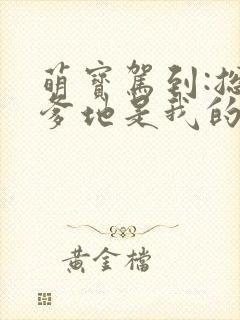 萌寶駕到:
爹地是我的
黃金檔